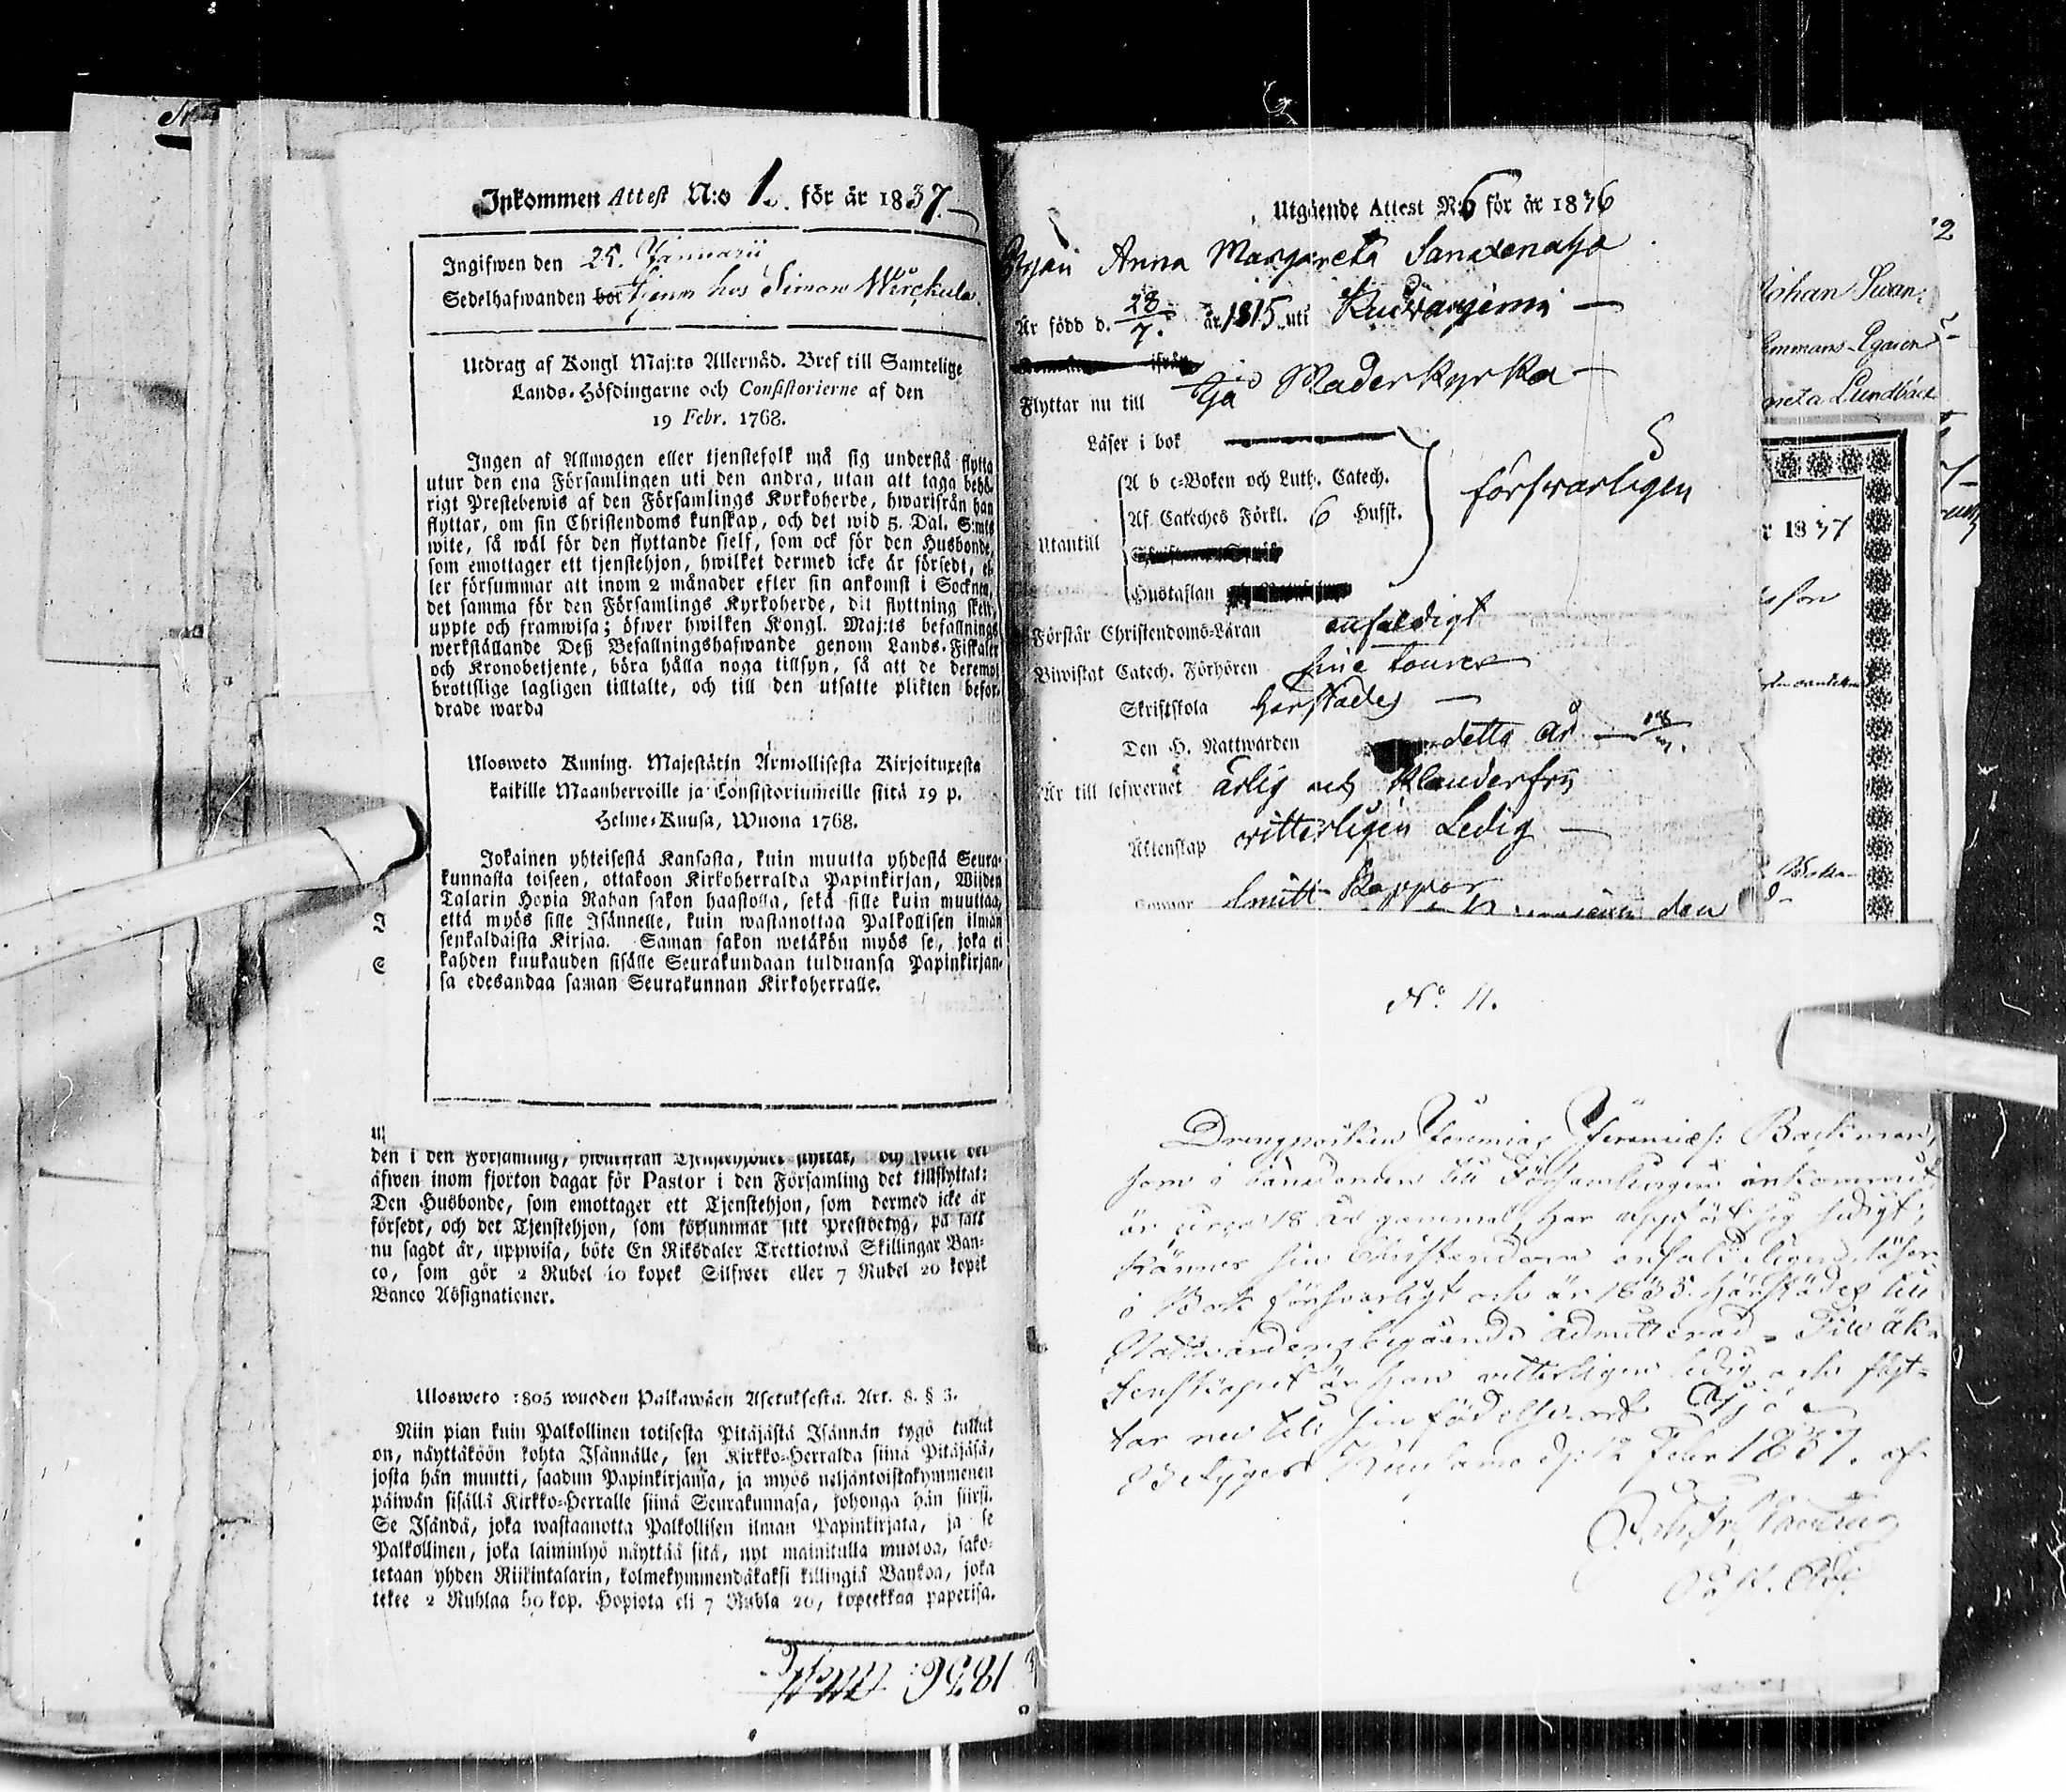 Inkommen Attest N:o 1. för år 1837.
Ingifwen den 25. Januarii
Sedelhafwanden bor tjenar hos Simon Wirckula
Utdrag af Kongl Maj:ts Allernåd. Bref till Samtelige
Lands-Höfdingarne och Consistorierne af den
19 Febr. 1768.
Ingen af Allmogen eller tjenstefolk må sig understå flytta
utur den ena Församlingen uti den andra, utan att taga behö-
rigt Prestebewis af den Församlings Kyrkoherde, hwarifrån han
flyttar, om sin Christendoms kunskap, och det wid 5. Dal. S:mts
wite, så wäl för den flyttande sjelf, som ock för den Husbonde,
som emottager ett tjenstehjon, hwilket dermed icke är försedt, el-
ler försummar att inom 2 månader efter sin ankomst i Socknen,
det samma för den Församlings Kyrkoherde, dit flyttning skett,
uppte och framwisa; öfwer hwilken Kongl. Maj:ts befallnings
werkställande Deß Befallningshafwande genom Lands-Fiskaler
och Kronobetjente, böra hålla noga tillsyn, så att de deremot
brottslige lagligen tilltalte, och till den utsatte plikten befor-
drade warda
Ulosweto Kuning. Majestätin Armollisesta Kirjoituxesta
kaikille Maanherroille ja Consistoriumeille siitä 19 p.
Helme-Kuusa, Wuona 1768.
Jokainen yhteisestä Kansasta, kuin muutta yhdestä Seura-
kunnasta toiseen, ottakoon Kirkoherralda Papinkirjan, Wijden
Talarin Hopia Rahan sakon haastolla, sekä sille kuin muuttaa,
että myös sille Isännelle, kuin wastanottaa Palkollisen ilman
senkaldaista Kirjaa. Saman sakon wetäkön myös se, joka ei
kahden kuukauden sisälle Seurakundaan tulduansa Papinkirjan-
sa edesandaa saman Seurakunnan Kirkoherralle.
den i den Församling, hwarifrån Tjenstehjonet flyttat, och
äfwen inom fjorton dagar för Pastor i den Församling det tillflyttat:
Den Husbonde, som emottager ett Tjenstehjon, som dermed icke är
försedt, och det Tjenstehjon, som försummar sitt Prestbetyg, på sätt
nu sagdt är, uppwisa, böte En Riksdaler Trettiotwå Skillingar Ban-
co, som gör 2 Rubel 40 kopek Silfwer eller 7 Rubel 20 kopek
Banco Assignationer.
Ulosweto 1805 wuoden Palkawäen Asetuksesta. Art. 8. § 3.
Niin pian kuin Palkollinen totisesta Pitäjästä Isännän tygö tullut
on, näyttäköön kohta Isännälle, sen Kirkko-Herralda siinä Pitäjäsä,
josta hän muutti, saadun Papinkirjansa, ja myös neljäntoistakymmenen
päiwän sisällä Kirkko-Herralle siinä Seurakunnasa, johonga hän siirsi.
Se Isändä, joka wastaanotta Palkollisen ilman Papinkirjata, ja se
Palkollinen, joka laiminlyö näyttää sitä, nyt mainitulla muotoa, sako-
tetaan yhden Riikintalarin, kolmekymmendäkaksi killingiä Bankoa, joka
tekee 2 Ruhlaa 50 kop. Hopiota eli 7 Rubla 20, kopeekkaa paperisa.
1836: Attest
Utgående Attest N:6 för år 1836
Pigan Anna Margareta Sanxenaho
Är född d. 28/7. år 1815 uti Kudvanjemi
Flyttar nu till Ijo Moderkyrka
Läser i bok
Utantill
A b c-Boken och Luth. Catech.
Af Cateches Förkl. 6 Hufst.
Hustaflan
försvarligen
Förstår Christendoms-Läran enfaldigt
Biwistat Catech. Förhören sine tourer
Skriftskola härstädes
Den H. Nattwarden detta år
Är till lefwernet ärlig och klanderfrij
Äktenskap vitterligen Ledig
haft Koppor
den
Johan Swan
Emmans Egaren
Greta Lundbäck
r 1837
N:o 11.
Drengpoiken Jeremias Jeremiæs: Backman,
som i barndomen till Församlingen inkommit
är circa 18 år gammal, har uppfört sig sedigt,
känner sin Christendom enfaldeligen, läser
i Bok försvarligt och är 1835 härstädes till
Nattvardens begående admitterad. Till äk-
tenskapet är han vitterligen ledig och flyt-
tar nu till sin födelseort Ijo
Betygar Kuusamo d. 12 Febr 1837. af
Past. Adj.